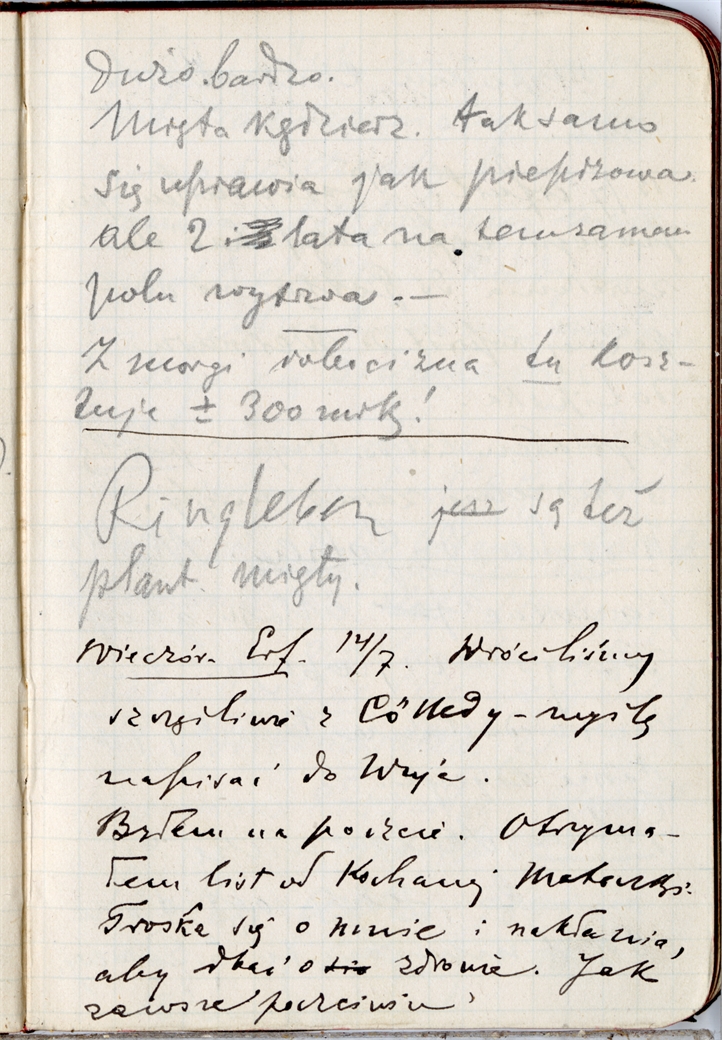 Dużo bardzo.
Mięta kędzierz. taksamo
się uprawia jak pieprzowa
ale 2 i lata na temsamem
polu wytrwa. —
Z morgi robocizna tu kosz-
tuje ± 300 mrk!
Ringleben jest są też
plant. mięty.
Wieczór. Erf. 14/7. Wróciliśmy
szczęśliwie z Cölledy – myślę
napisać do Wuja.
Byłem na poczcie. Otrzyma-
łem list od Kochanej Mateczki.
Troska się o mnie i nakłania,
aby dbać o zdrowie. Jak
zawsze poczciwie